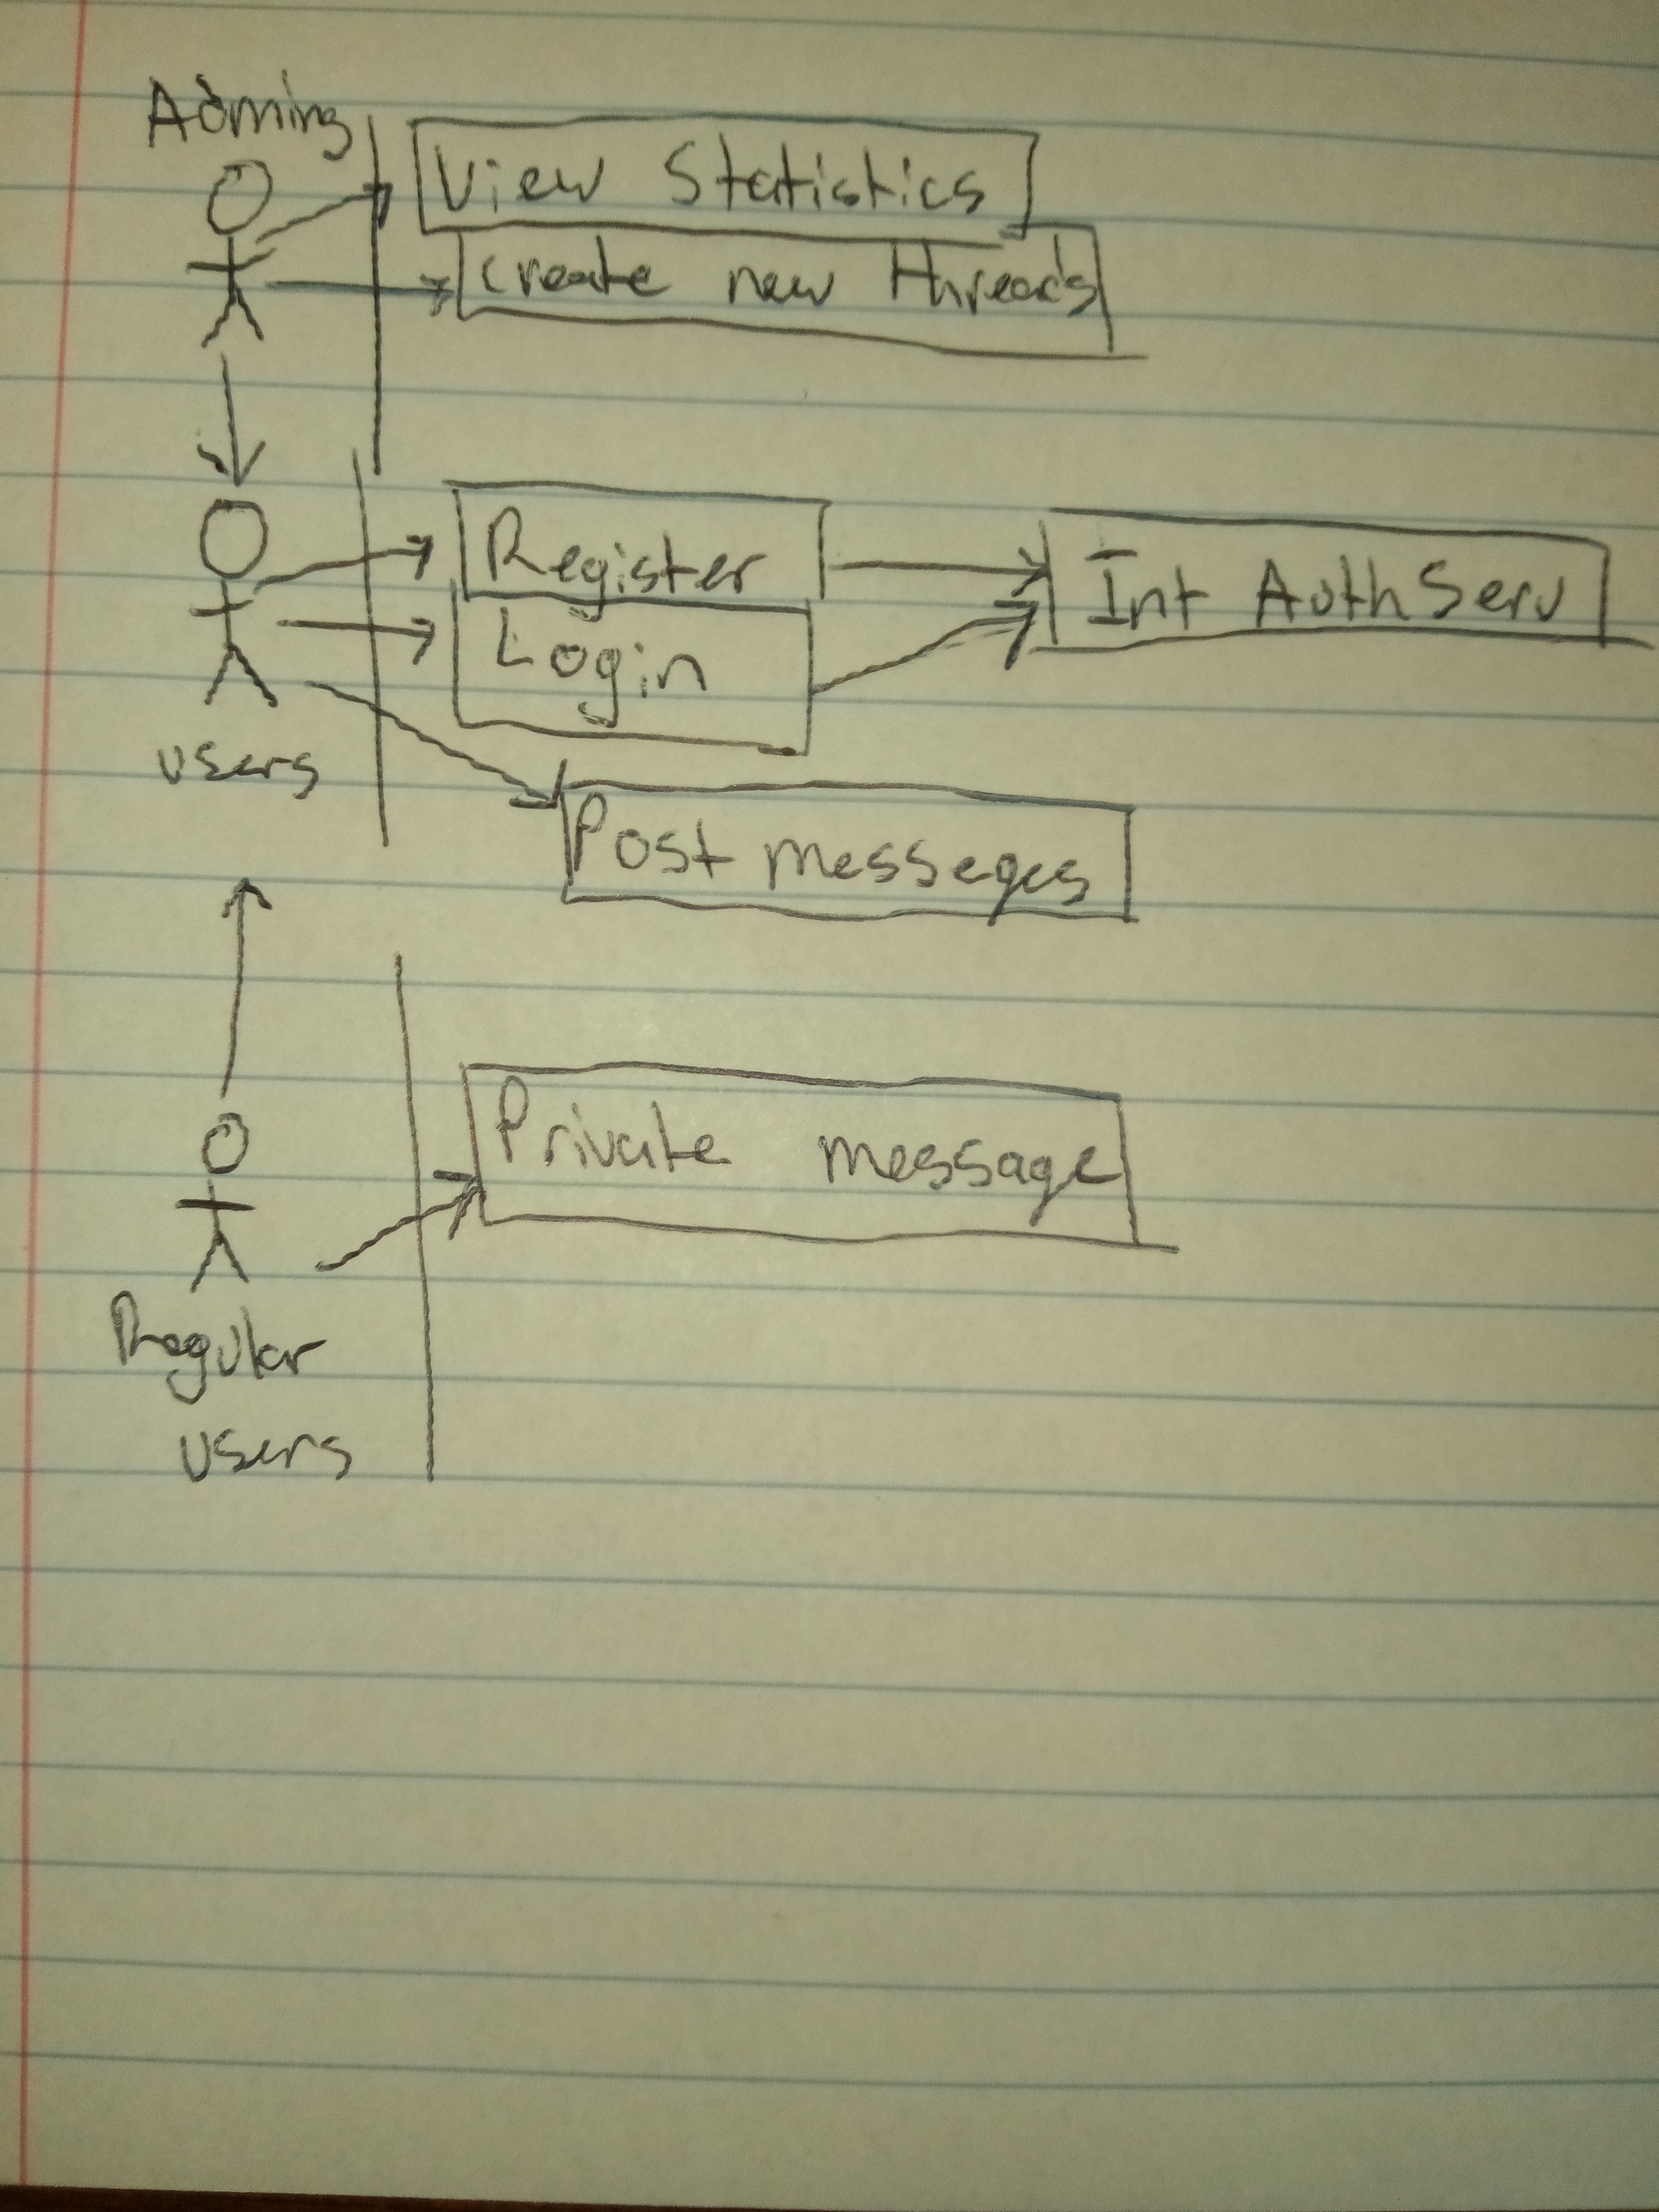 Admins
View Statistics
create new threads
Register
Int Auth Serv
Login
users
Post messeges
Private message
Regular
users